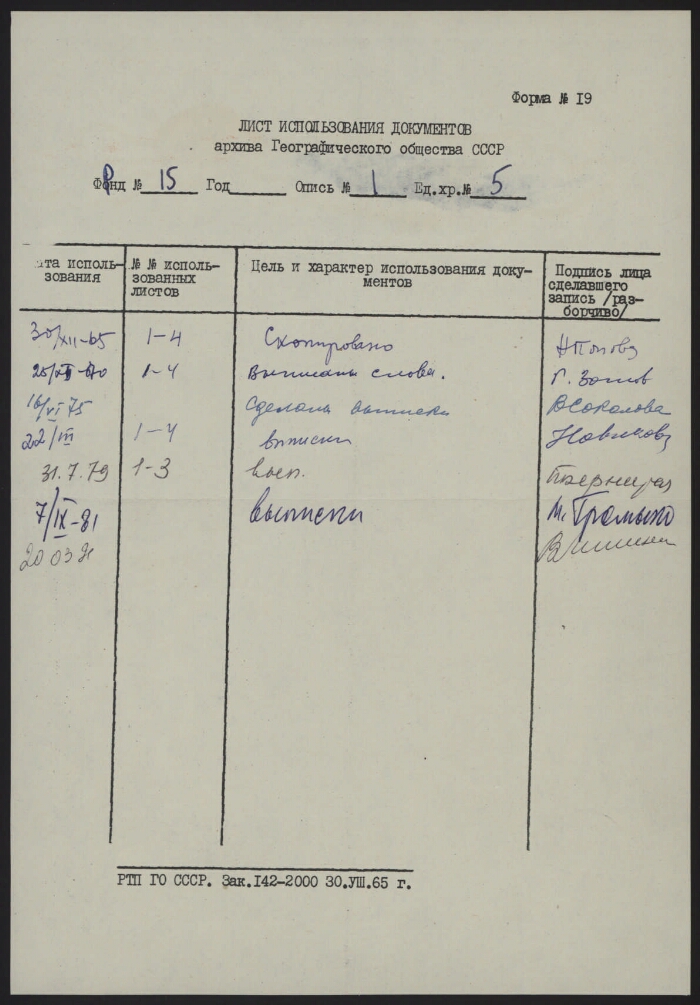 Форма № 19
ЛИСТ ИСПОЛЬЗОВАНИЯ ДОКУМЕНТОВ
архива Географического общества СССР
Фонд № 15 Год Опись № 1 Ед.хр.№ 5
та исполь-
зования
№ № исполь-
зованных
листов
Цель и характер использования доку-
ментов
Подпись лица
сделавшего
запись /раз-
борчиво/
30/XII-65 1-4 Скопировано НПопова
25/ 1-4 Выписаны слова. Г.
16/VI 75 Сделаны выписки ВСоколова
22/III 1-4 выписки Новикова
31.7.79 1-3 вып.
7/IX-81 выписки М. Громыко
20 03
РТП ГО СССР. Зак.142-2000 30.УШ.65 г.